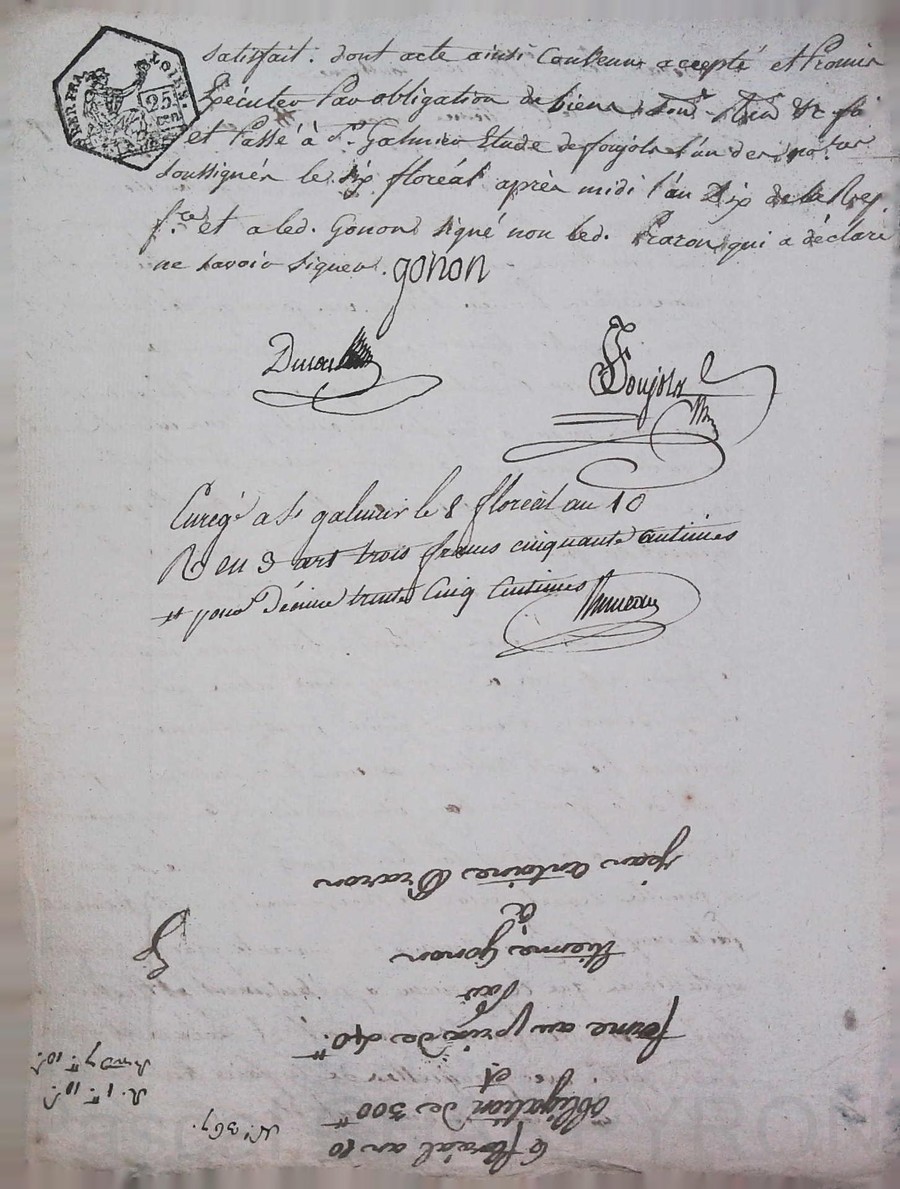 REP. FRA
25
satisfait. dont acte ainsi Convenu accepté et Promis
Exécuter Par obligation de biens
et Passé à St. Galmier Etude de foujols l'un des no.res
soussignés le six floréal après midi l'an Dix de la Rep.
f.se et a led. Gonon signé non led. Praron qui a déclaré
ne savoir signer. gonon
Foujols
Enregé a St galmier le 8 floréal an 10
R en 3 art trois francs cinquante centimes
et pour Décime trente Cinq Centimes
6 floréal an 10
N.o 367.
obligation de 300 tt
et
ferme au prix de 40. tt
par
Etienne Gonon
à
jean antoine Praron